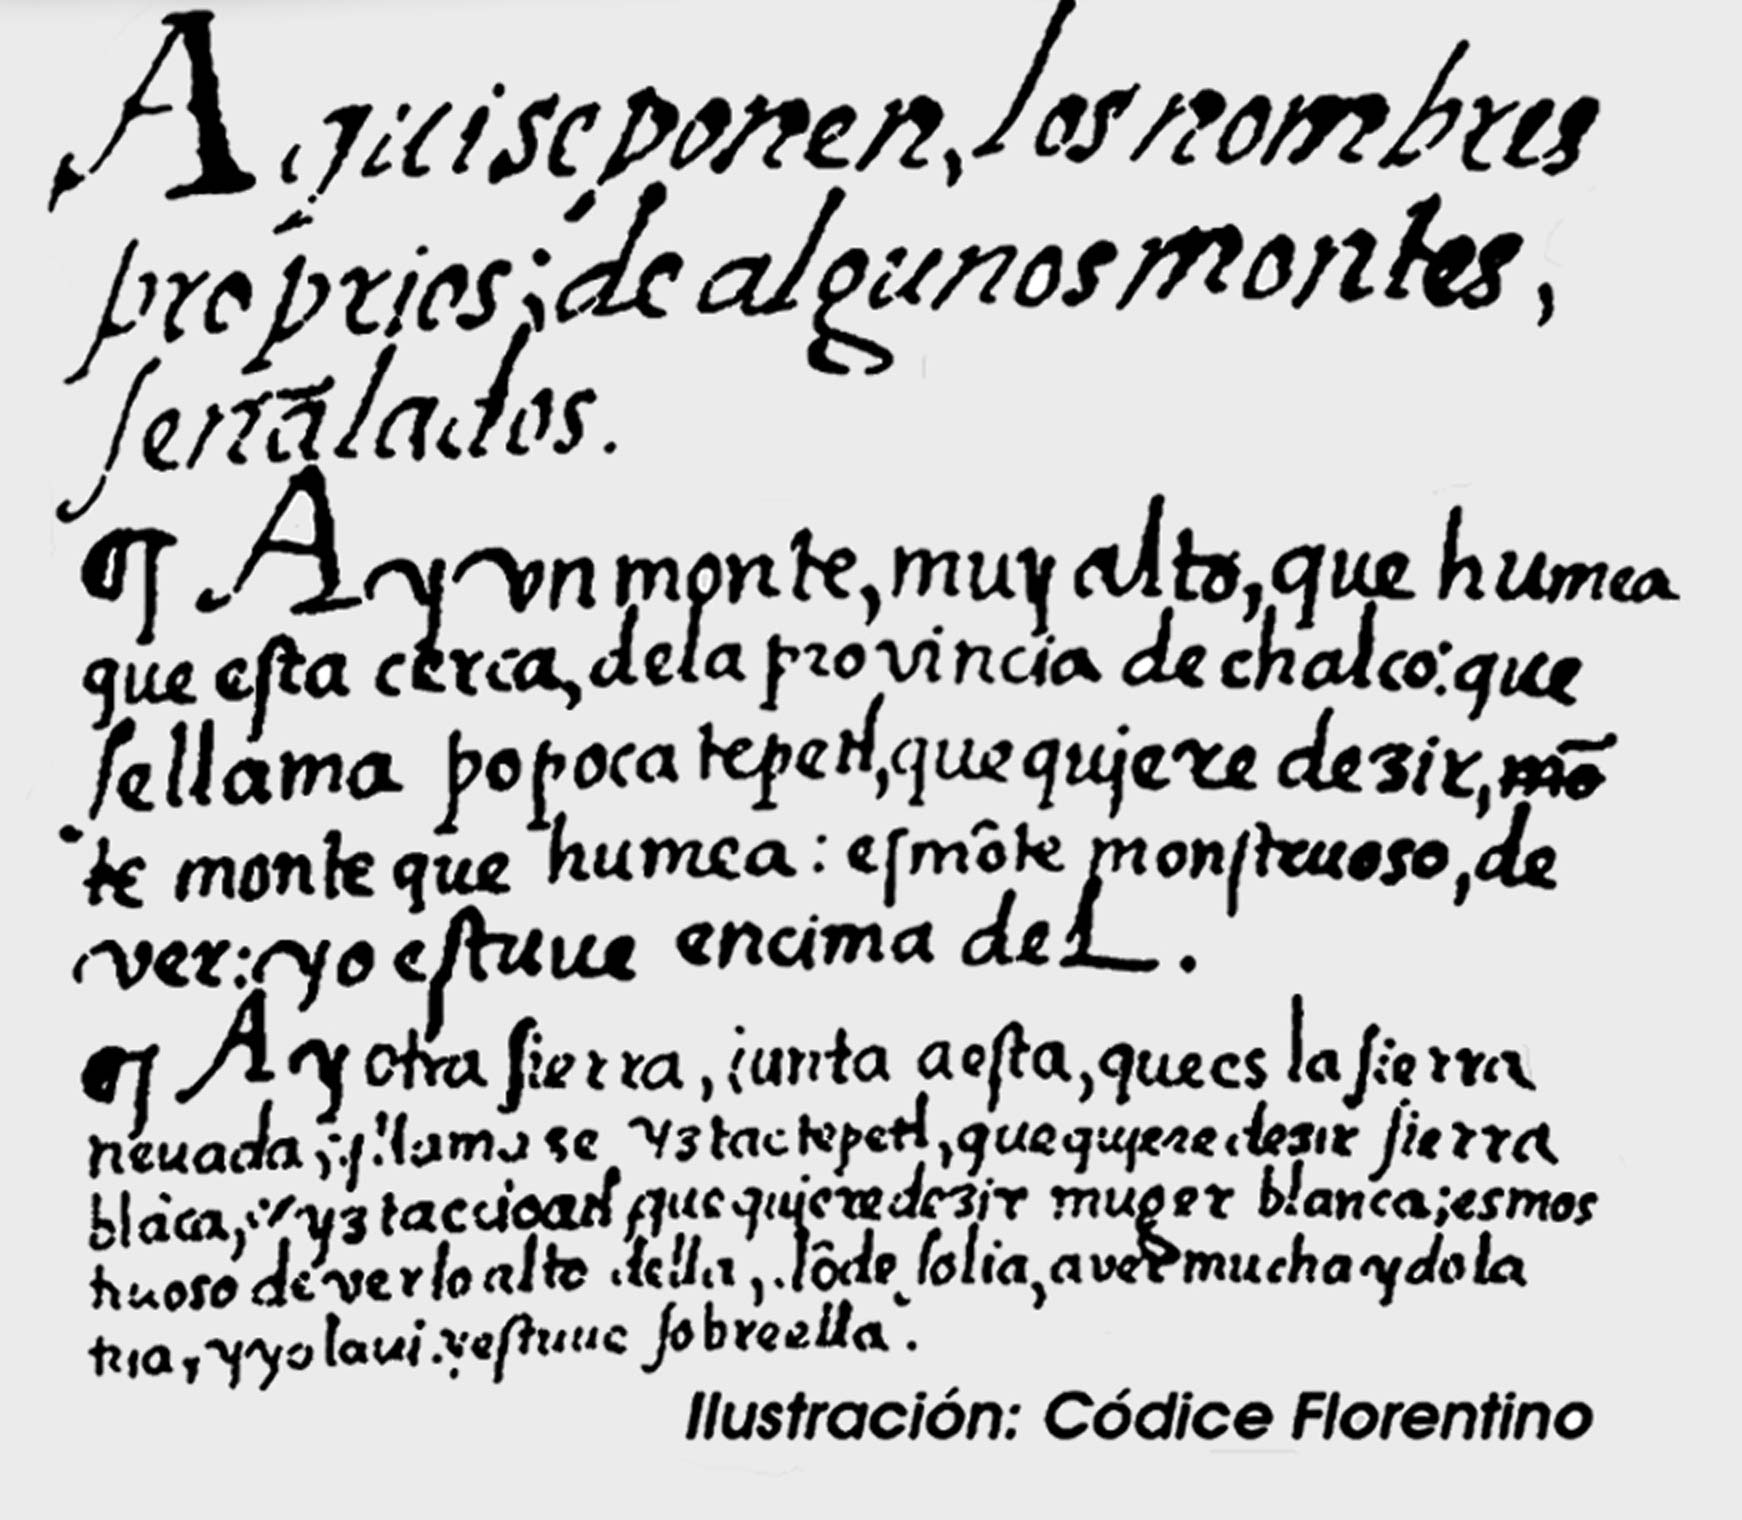 Aqui se ponen, los nombres
proprios; de algunos montes,
señalados.
¶ Ay vn monte, muy alto, que humea
que esta cerca, dela provincia de chalco: que
sellama popoca tepetl, que qujere dezir, mõ
te monte que humea: es mõte monstruoso, de
ver: yo estuue encima del.
¶ Ay otra sierra, iunta a esta, que es la sierra
neuada; y llama se yztactepetl, que qujere dezir sierra
blãca, yztaccioatl que qujere dezir muger blanca; es mos
truoso de ver lo alto della, dõde solia, aver mucha ydola
tria, y yo la vi. y estuue sobre ella.
Ilustración: Códice Florentino